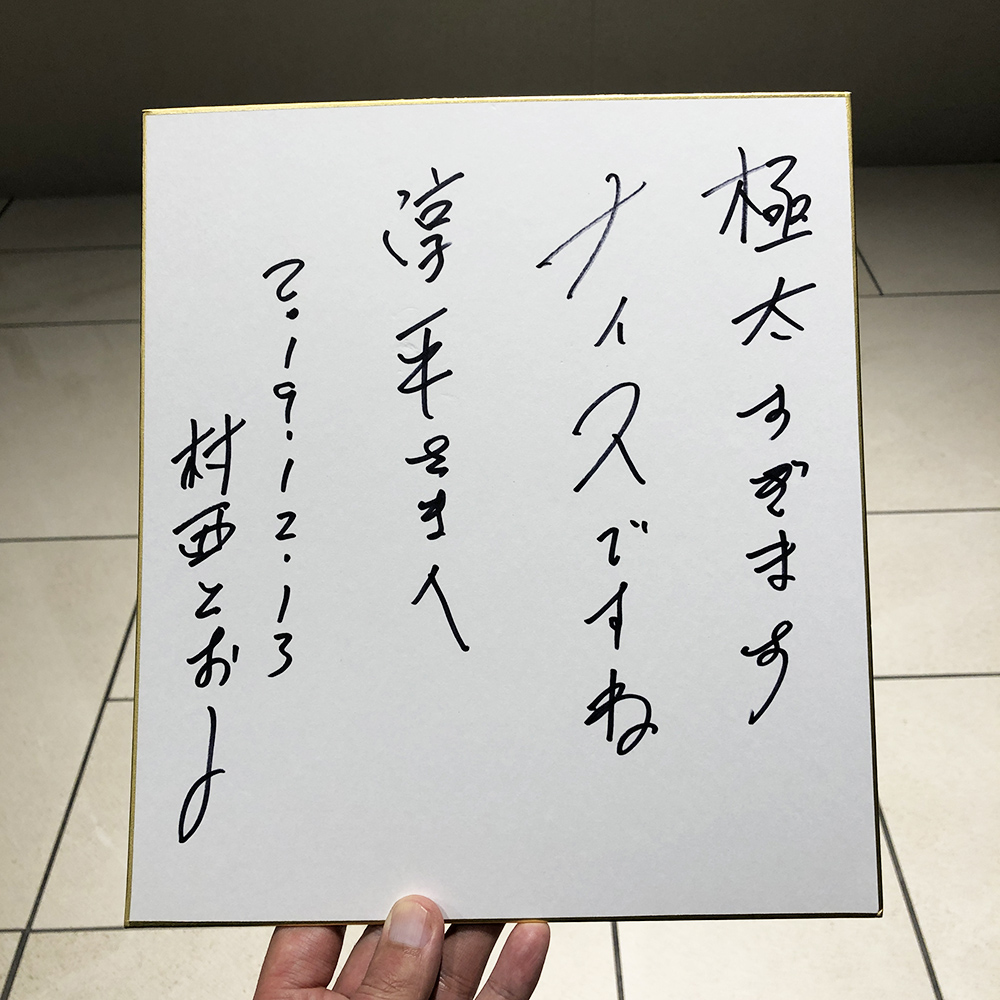 極太すぎます
ナイスですね
淳平さまへ
2.19.12.13
村西とおる